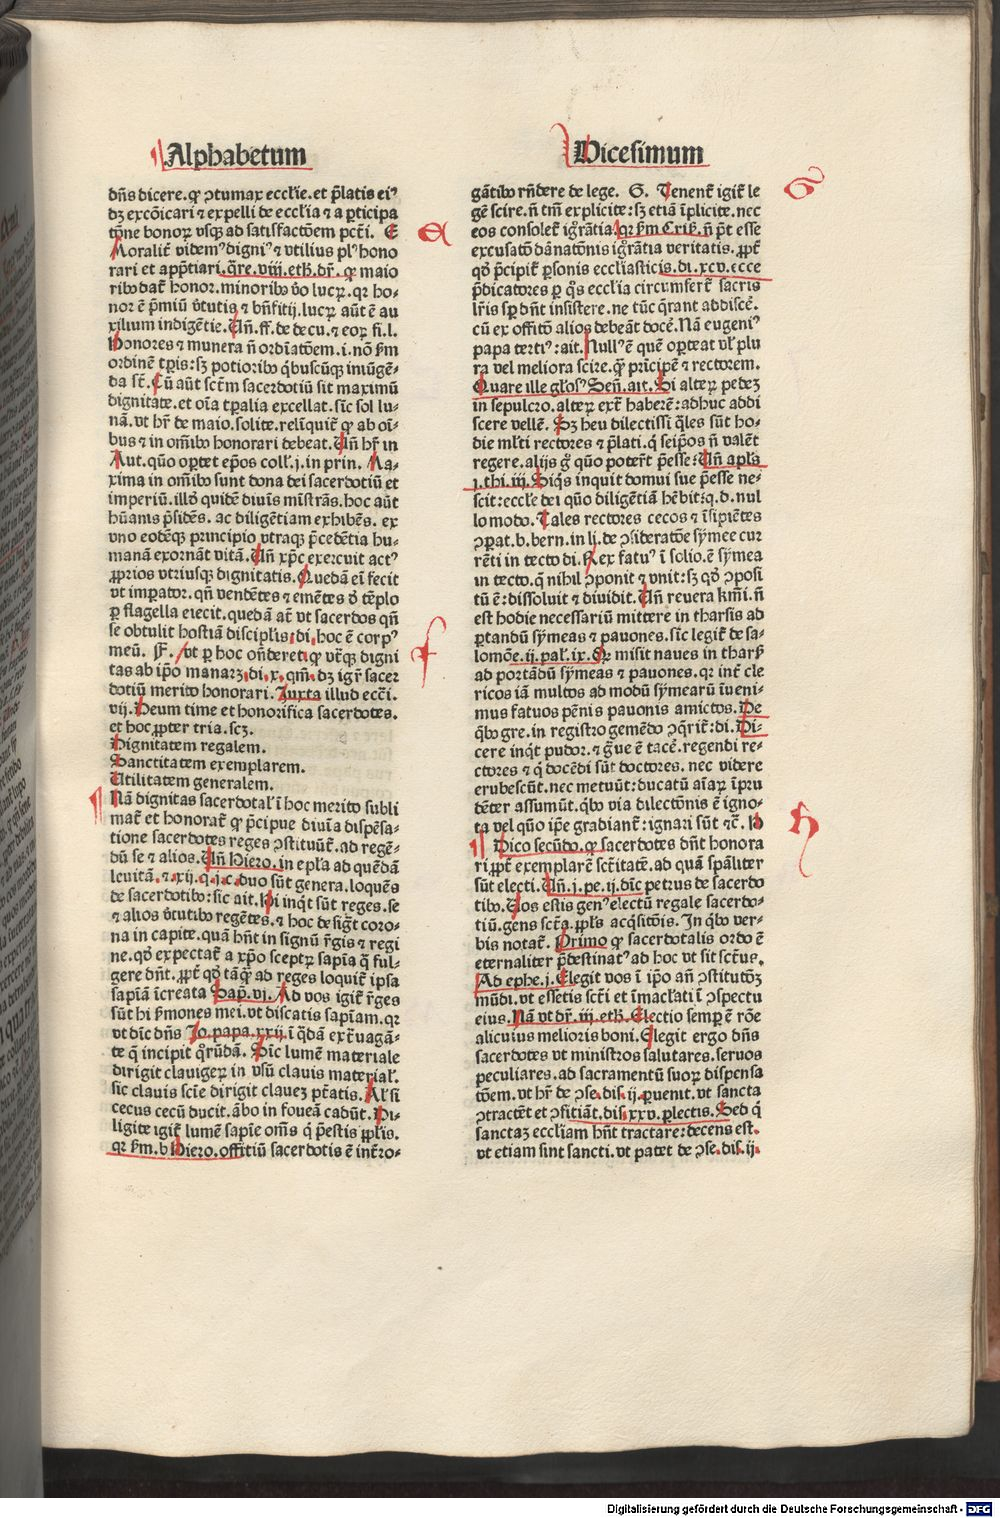 Alphabetum
Vicesimum
dn̄s dicere. ꝙ ꝯtumax eccl̄ie. et p̄latis eiꝰ
dꝫ excōicari ⁊ expelli de ecclīa ⁊ a ꝑticipa
tōne bonoꝝ vsqꝫ ad satisfactōem pct̄i. E
Moralit̄ videmꝰ digniꝰ ⁊ vtilius plꝰ hono
rari et app̄tiari. q̄re. viij. eth. dr̄. ꝙ maio
ribꝰ dat̄ honor. minoribꝰ v̓o lucꝝ. qꝛ ho⸗
nor ē p̄miū v̓tutis ⁊ bn̄fitij. lucꝝ aūt ē au
xilium indigētie. Vn̄. ff. de decu. ⁊ eoꝝ fi. l.
Honores ⁊ munera n̄ ordīatōem. i. nō ẜm
ordinē tp̄is: sꝫ potioribꝰ q̇buscūqꝫ iniūgē⸗
da st̄. Cū aūt sct̄m sacerdotiū sit maximū
dignitate. et oīa tp̄alia excellat. sic̄ sol lu⸗
nā. vt hr̄ de maio. solite. reliquit̄ ꝙ ab oī⸗
bus ⁊ in om̄ibꝰ honorari debeat. Vn̄ hr̄ in
Aut. quō oꝑtet ep̄os coll. j. in prin. Ma⸗
xima in om̄ibꝰ sunt dona dei sacerdotiū et
imperiū. illꝰ quidē diuīs mīstrās. hoc aūt
hūanis p̄sidēs. ac diligētiam exhibēs. ex
vno eodēqꝫ principio vtraqꝫ p̄cedētia hu⸗
manā exornāt vitā. Vn̄ xp̄c exercuit actꝰ
ꝓprios vtriusqꝫ dignitatis. Quedā eī fecit
vt imperator. qn̄ vendētes ⁊ emētes d̓ tēplo
ꝑ flagella eiecit. quedā at̄ vt sacerdos qn̄
se obtulit hostiā disciplis. di. hoc ē corpꝰ
meū. F. vt ꝑ hoc on̄deret. ꝙ vtraqꝫ digni
tas ab ip̄o manarꝫ. di. x. qm̄. dꝫ igr̄ sacer
dotiū merito honorari. Juxta illud ecc̄i.
vij. Deum time et honorifica sacerdotes.
et hoc ꝓpter tria. scꝫ.
Dignitatem regalem.
Sanctitatem exemplarem.
Vtilitatem generalem.
Nā dignitas sacerdotalꝭ ī hoc merito subli
mat̄ et honorat̄ ꝙ p̄cipue diuīa dispēsa⸗
tione sacerdotes reges ꝯstituūt̄. ad regē⸗
dū se ⁊ alios. Vn̄ Hiero. in ep̄la ad quēdā
leuitā. ⁊. xij. q. j. c. duo sūt genera. loquēs
de sacerdotibꝰ: sic ait. Hi inq̇t sūt reges. se
⁊ alios v̓tutibꝰ regētes. ⁊ hoc desigt̄ coro⸗
na in capite. quā hn̄t in signū r̄gis ⁊ regi
ne. qd̓ expectat̄ a xp̄o sceptꝝ sapīa q̄ ful⸗
gere dn̄t. ꝓpt̄ qd̓ tāqꝫ ad reges loquit̄ ipsa
sapīa īcreata Sap̄. vj. Ad vos igit̄ r̄ges
sūt hi ẜmones mei. vt discatis sapīam. qꝛ
vt dic̄ dn̄s Jo. papa. xxij. ī q̇dā ext̄uagā⸗
te q̄ incipit q̄rūdā. Sic̄ lumē materiale
dirigit clauigeꝝ in vsū clauis material.
sic clauis scīe dirigit claueꝫ pt̄atis. Al̓ si
cecus cecū ducit. ābo in foueā cadūt. Di⸗
ligite igit̄ lumē sapīe om̄s q̇ p̄estis ꝓplis.
qꝛ ẜm. b Hiero. offitiū sacerdotis ē int̄ro⸗
gātibꝰ rn̄dere de lege. G. Tenent̄ igit̄ le
gē scire. n̄ tm̄ explicite: sꝫ etiā īplicite. nec
eos consolet̄ igr̄ātia. qꝛ ẜm Criẜ. n̄ p̄t esse
excusatō dānatōnis igr̄ātia veritatis. ꝓpt̄
qd̓ p̄cipit̄ ꝑsonis eccliasticis. di. xcv. ecce
p̄dicatores ꝑ q̓s ecclīa circumfert̄ sacris
lr̄is sꝑ dn̄t insistere. ne tūc q̄rant addiscē.
cū ex offitō alios debeāt docē. Nā eugeniꝰ
papa tertiꝰ: ait. Nullꝰ ē quē oꝑteat vl̓ plu
ra vel meliora scire. ꝙ p̄ncipē ⁊ rectorem.
Quare ille gl̓osꝰ Sen̄. ait. Si alteꝝ pedeꝫ
in sepulcro. alteꝝ ext̄ haberē: adhuc addi
scere vellē. Sꝫ heu dilectissī q̄les sūt ho⸗
die ml̓ti rectores ⁊ p̄lati. q̇ seip̄os n̄ valēt
regere. alijs gͦ quō poter̄t p̄esse: Vn̄ apl̓s
j. thi. iij. Siq̇s inquit domui sue p̄esse ne⸗
scit: eccl̓e dei quō diligētiā hēbit: q. d. nul
lo modo. Tales rectores cecos ⁊ īsipiētes
ꝯꝑat. b. bern. in li. de ꝯsideratōe sȳmee cur
rēti in tecto di. Rex fatuꝰ ī solio. ē sȳmea
in tecto. q̄ nihil ꝯponit ⁊ vnit: sꝫ qd̓ ꝯposi
tū ē: dissoluit ⁊ diuidit. Vn̄ reuera km̄i. n̄
est hodie necessariū mittere in tharsis ad
ꝑtandū sȳmeas ⁊ pauones. sic̄ legit̄ de sa⸗
lomōe. ij. pal̓. ix. Qꝛ misit naues in tharẜ
ad portādū sȳmeas ⁊ pauones. qꝛ int̄ cle
ricos iā multos ad modū sȳmearū īueni⸗
mus fatuos pēnis pauonis amictos. De
q̇bꝰ gre. in registro gemēdo ꝯq̄rit̄: di. Di⸗
cere inq̇t pudor. ⁊ g̓ue ē tacē. regendi re⸗
ctores ⁊ q̇ docēdi sūt doctores. nec videre
erubescūt. nec metuūt: ducatū aīaꝝ īpru
dēter assumūt. q̇bꝰ via dilectōnis ē igno⸗
ta vel quō ip̄e gradiant̄: ignari sūt ⁊c̄. H
Dico secūdo. ꝙ sacerdotes dn̄t honora
ri ꝓpt̄ exemplarē sct̄itatē. ad quā spāliter
sūt electi. Vn̄. j. pe. ij. dic̄ petrus de sacerdo
tibꝰ. Vos estis genꝰ electū regale sacerdo⸗
tiū. gens sct̄a. ꝓpl̓s acq̇sitōis. In q̇bꝰ ver⸗
bis notat̄. Primo ꝙ sacerdotalis ordo ē
eternaliter p̄destinatꝰ ad hoc vt sit sct̄us.
Ad ephe. j. Elegit vos ī ip̄o an̄ ꝯstitutōꝫ
mūdi. vt essetis sct̄i et īmacl̓ati ī ꝯspectu
eius. Nā vt dr̄. iij. eth. Electio semꝑ ē rōe
alicuius melioris boni. Elegit ergo dn̄s
sacerdotes vt ministros salutares. seruos
peculiares. ad sacramentū suoꝝ dispensa
tōem. vt hr̄ de ꝯse. dis. ij. ꝑuenit. vt sancta
ꝯtractēt et ꝯfitiāt. dis. xxv. ꝑlectis. Sed q̇
sanctaꝫ eccl̓iam hn̄t tractare: decens est.
vt etiam sint sancti. vt patet de ꝯse. dis. ij.
e
f
G
h
Digitalisierung gefördert durch die Deutsche Forschungsgemeinschaft - DFG